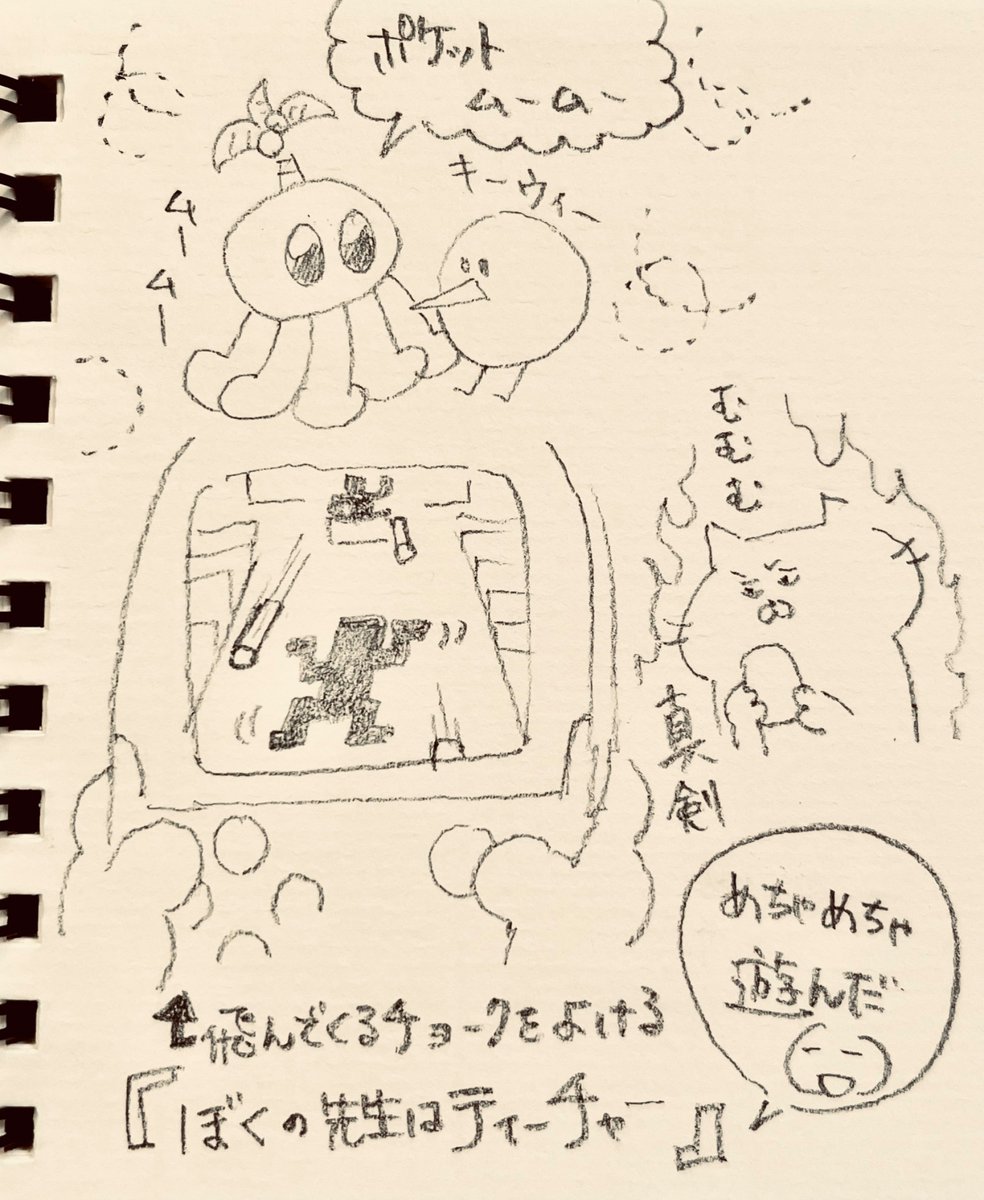 ポケット
ムームー
キーウィー
ムームー
むむむ
真剣
めちゃめちゃ
遊んだ
↑飛んでくるチョークをよける
『ぼくの先生はティーチャー』